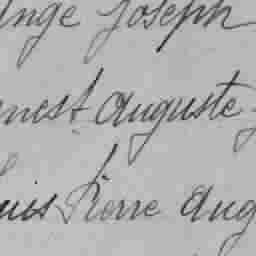 ange Joseph
nest Auguste
uis Pierre Aug